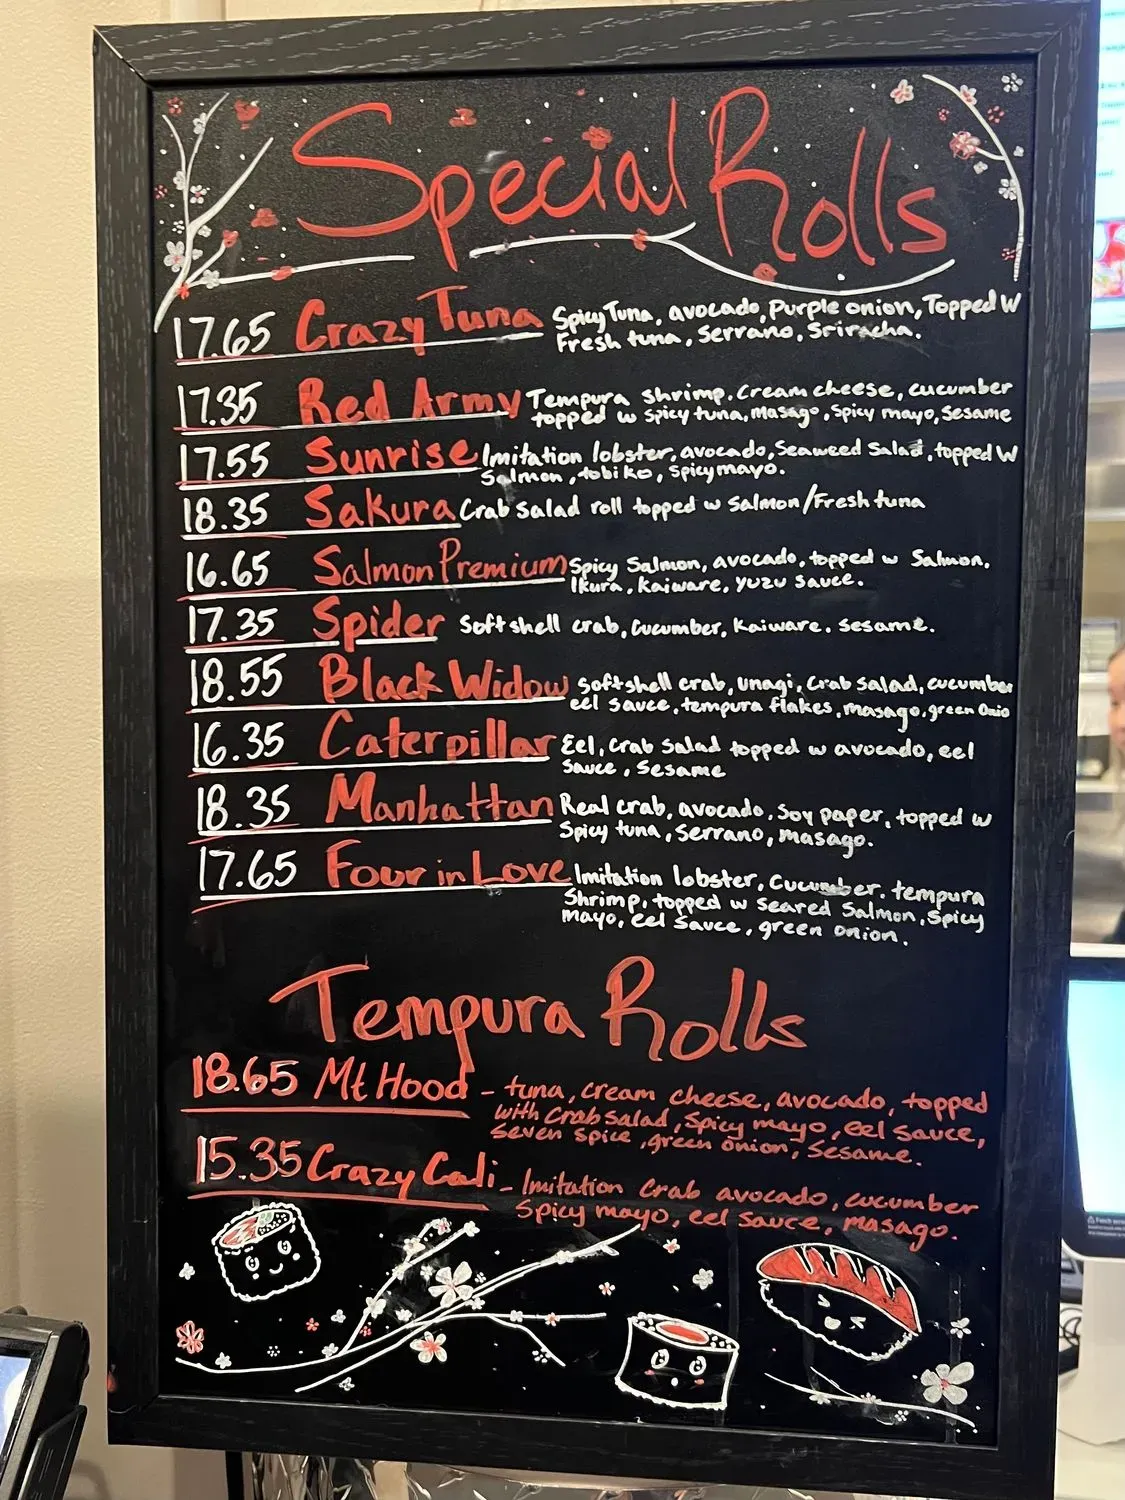 Special Rolls
17.65 Crazy Tuna Spicy Tuna, avocado, Purple onion, Topped W
Fresh tuna, Serrano, Sriracha.
17.35 Red Army Tempura shrimp. Cream cheese, cucumber
topped w spicy tuna, masago, spicy mayo, sesame
17.55 Sunrise Imitation lobster, avocado, Seaweed Salad, topped W
Salmon, tobiko, spicy mayo.
18.35 Sakura Crab Salad roll topped w Salmon/Fresh tuna
16.65 Salmon Premium Spicy Salmon, avocado, topped w Salmon.
Ikura, Kaiware, yuzu sauce.
17.35 Spider Softshell crab, Cucumber, Kaiware. sesame.
18.55 Black Widow softshell crab, unagi, Crab Salad, cucumber
eel sauce, tempura flakes, masago, green Onio
16.35 Caterpillar Eel, crab salad topped w avocado, eel
sauce, Sesame
18.35 Manhattan Real crab, avocado, Soy paper, topped w
Spicy tuna, Serrano, masago.
17.65 Four in Love Imitation lobster, Cucumber. tempura
Shrimp, topped w seared Salmon, Spicy
mayo, eel Sauce, green onion.
Tempura Rolls
18.65 Mt Hood - tuna, cream cheese, avocado, topped
with Crab salad, Spicy mayo, eel sauce,
Seven Spice, green onion, Sesame.
15.35 Crazy Cali - Imitation Crab avocado, cucumber
Spicy mayo, eel sauce, masago.